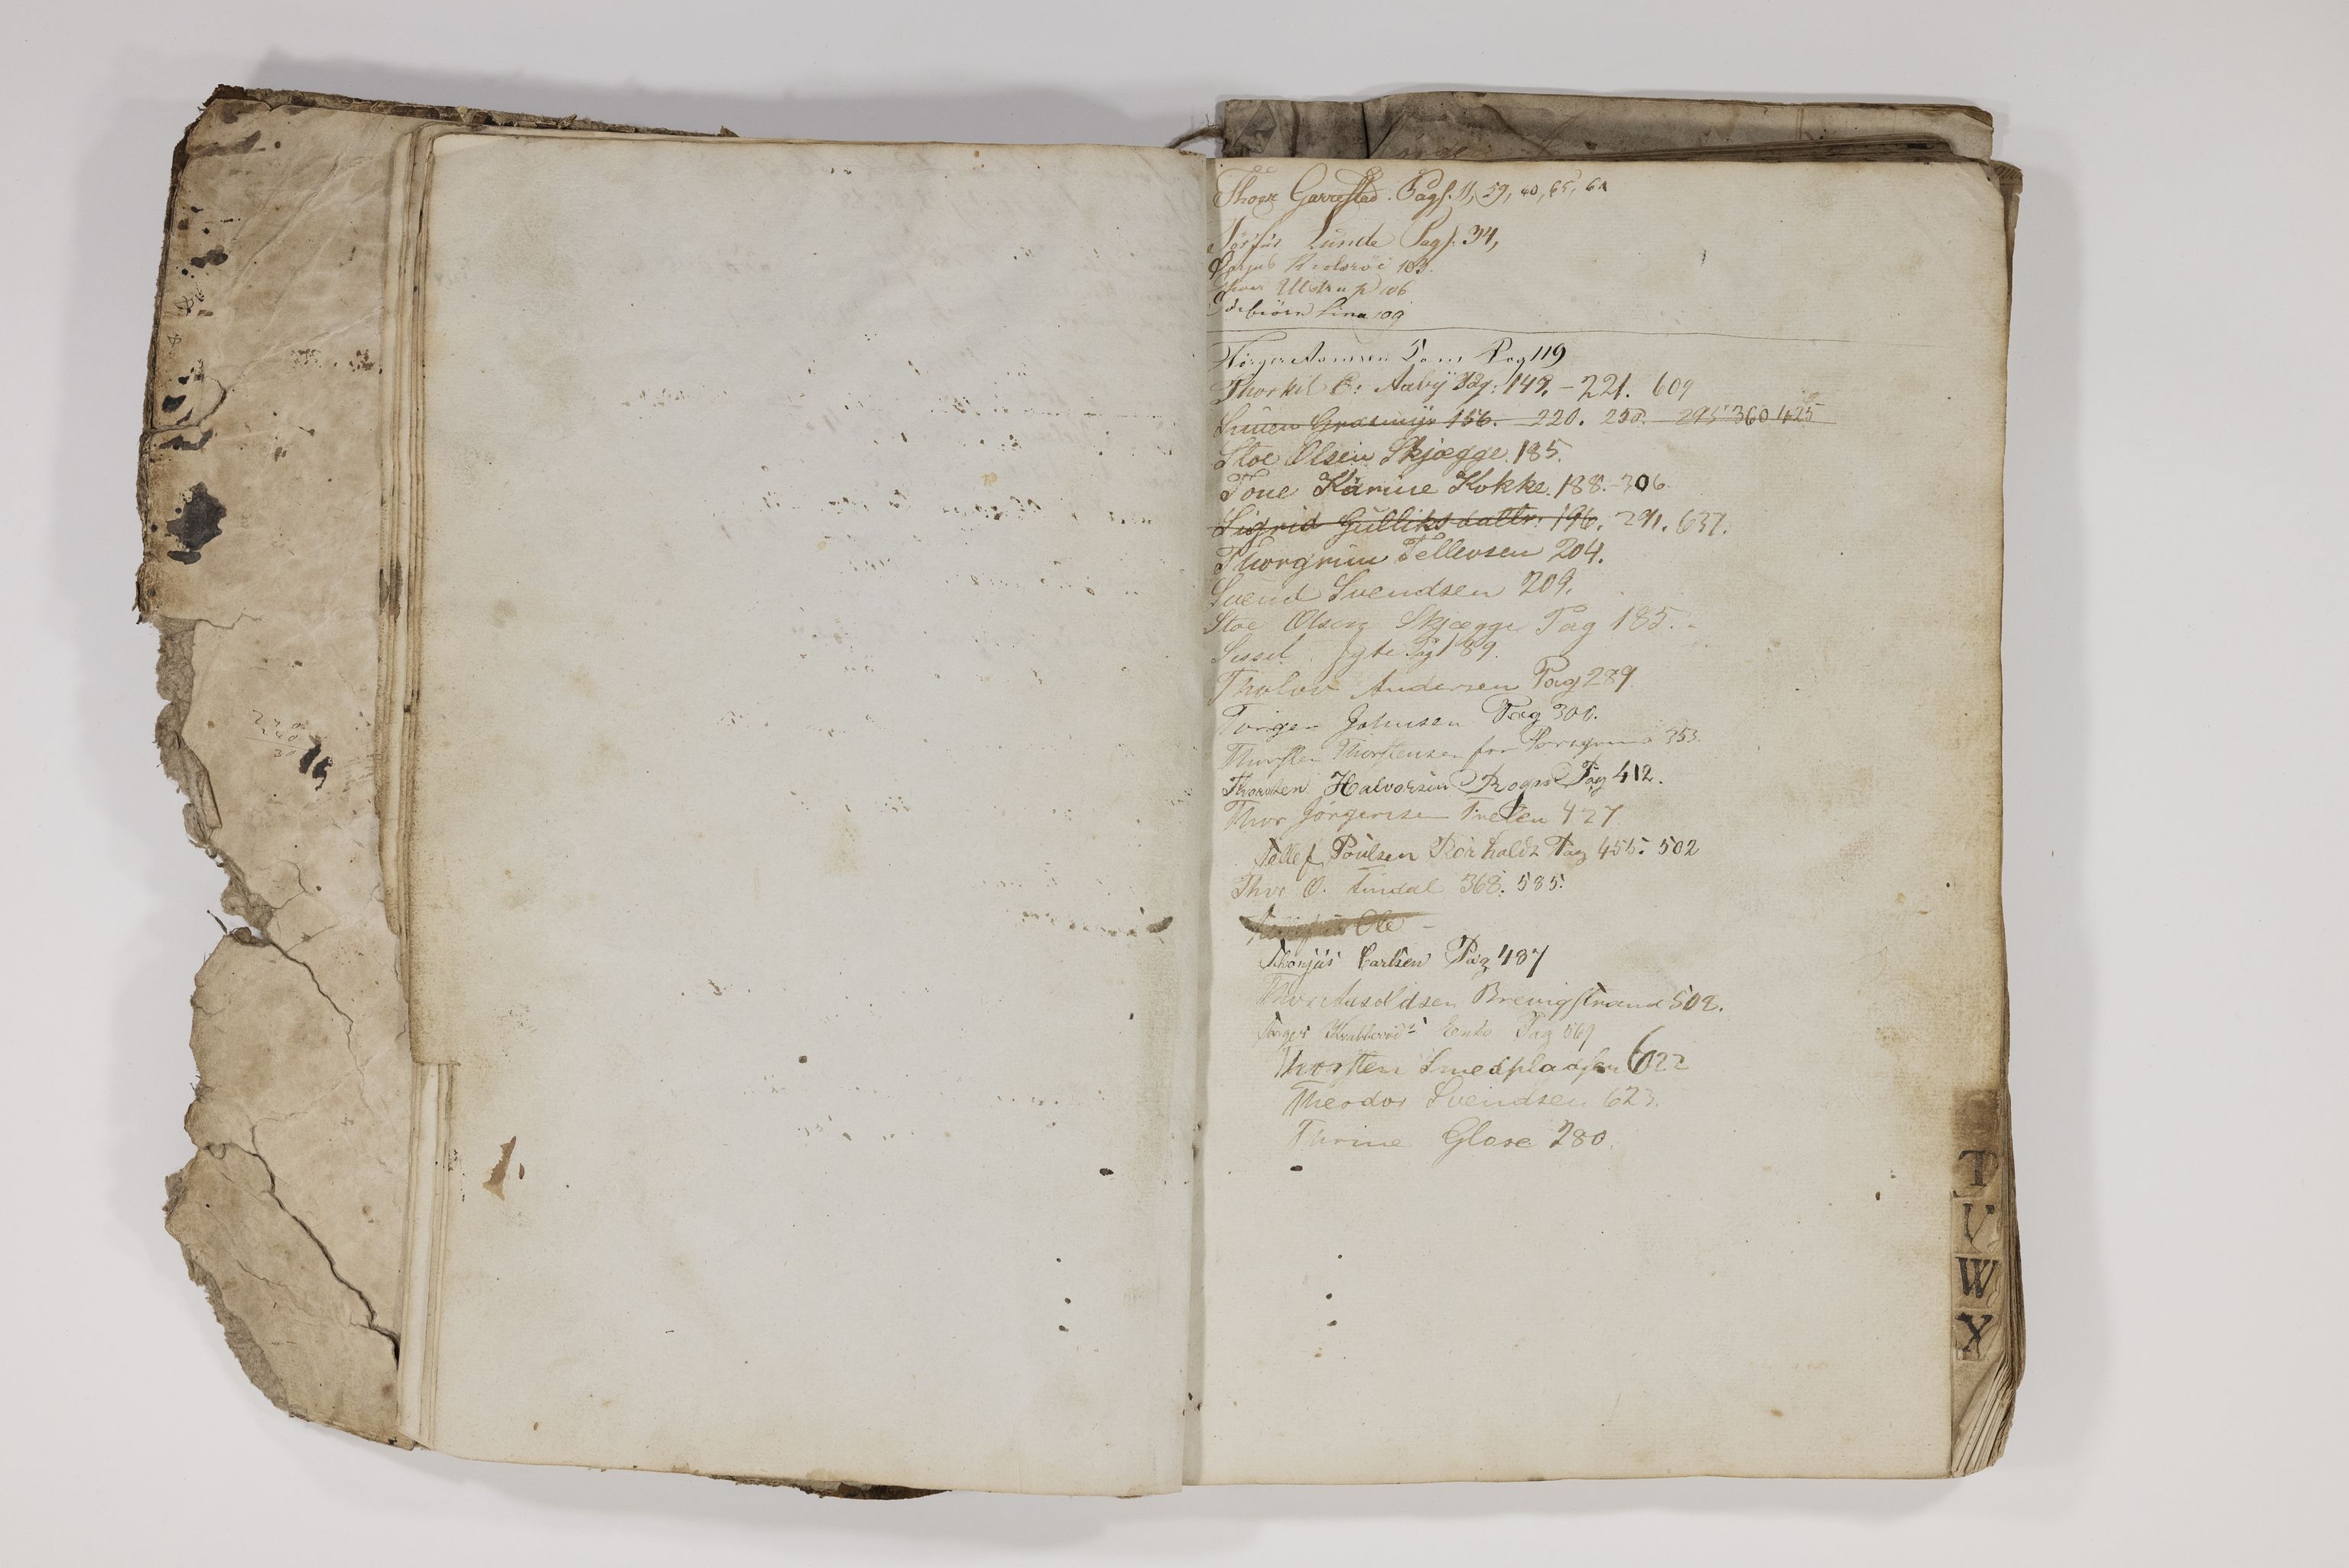 Thoer Garrestad. Pag. 11, 59, 40, 65, 61
Lunde Pag. 34,
103.
Thoer Ulstrup 106
Torbiörn Lina 109
Torger Aamsen Pag 119
Thorkil C: Aaby Pag: 149. – 221. 609
Suuen Grasmyr 156. 220. 250. 295 360 425
Stoe Olsen Skjægge. 185.
Tone Karine Kokke. 188. – 306.
Sigrid Gulliksdattr. 196. 291. 637.
Thorgrim Tellevsen 204.
Svend Svendsen 209.
Stoe Olsen Skjægge Pag 185. –
Sissel Pag 189.
Tholov Andersen Pag 289
Torger Johnsen Pag 300.
Thorsten Thorstensen fra Porsgrund 353.
Thorsten Halvorsen Pag 412.
Thor Jörgensen 427
Tollef Poulsen Rörholdt Pag 455. 502
Thor O. Tindal 368. 585.
Ole –
Thorjüs Carlsen Pag 487
Thor Aasoldsen Brevigstrand 502.
Torger Krabberöd Enke Pag 569
Thorsten Smedpladsen 622
Theodor Svendsen 623.
Thrine Glose 280.
T
V
W
X